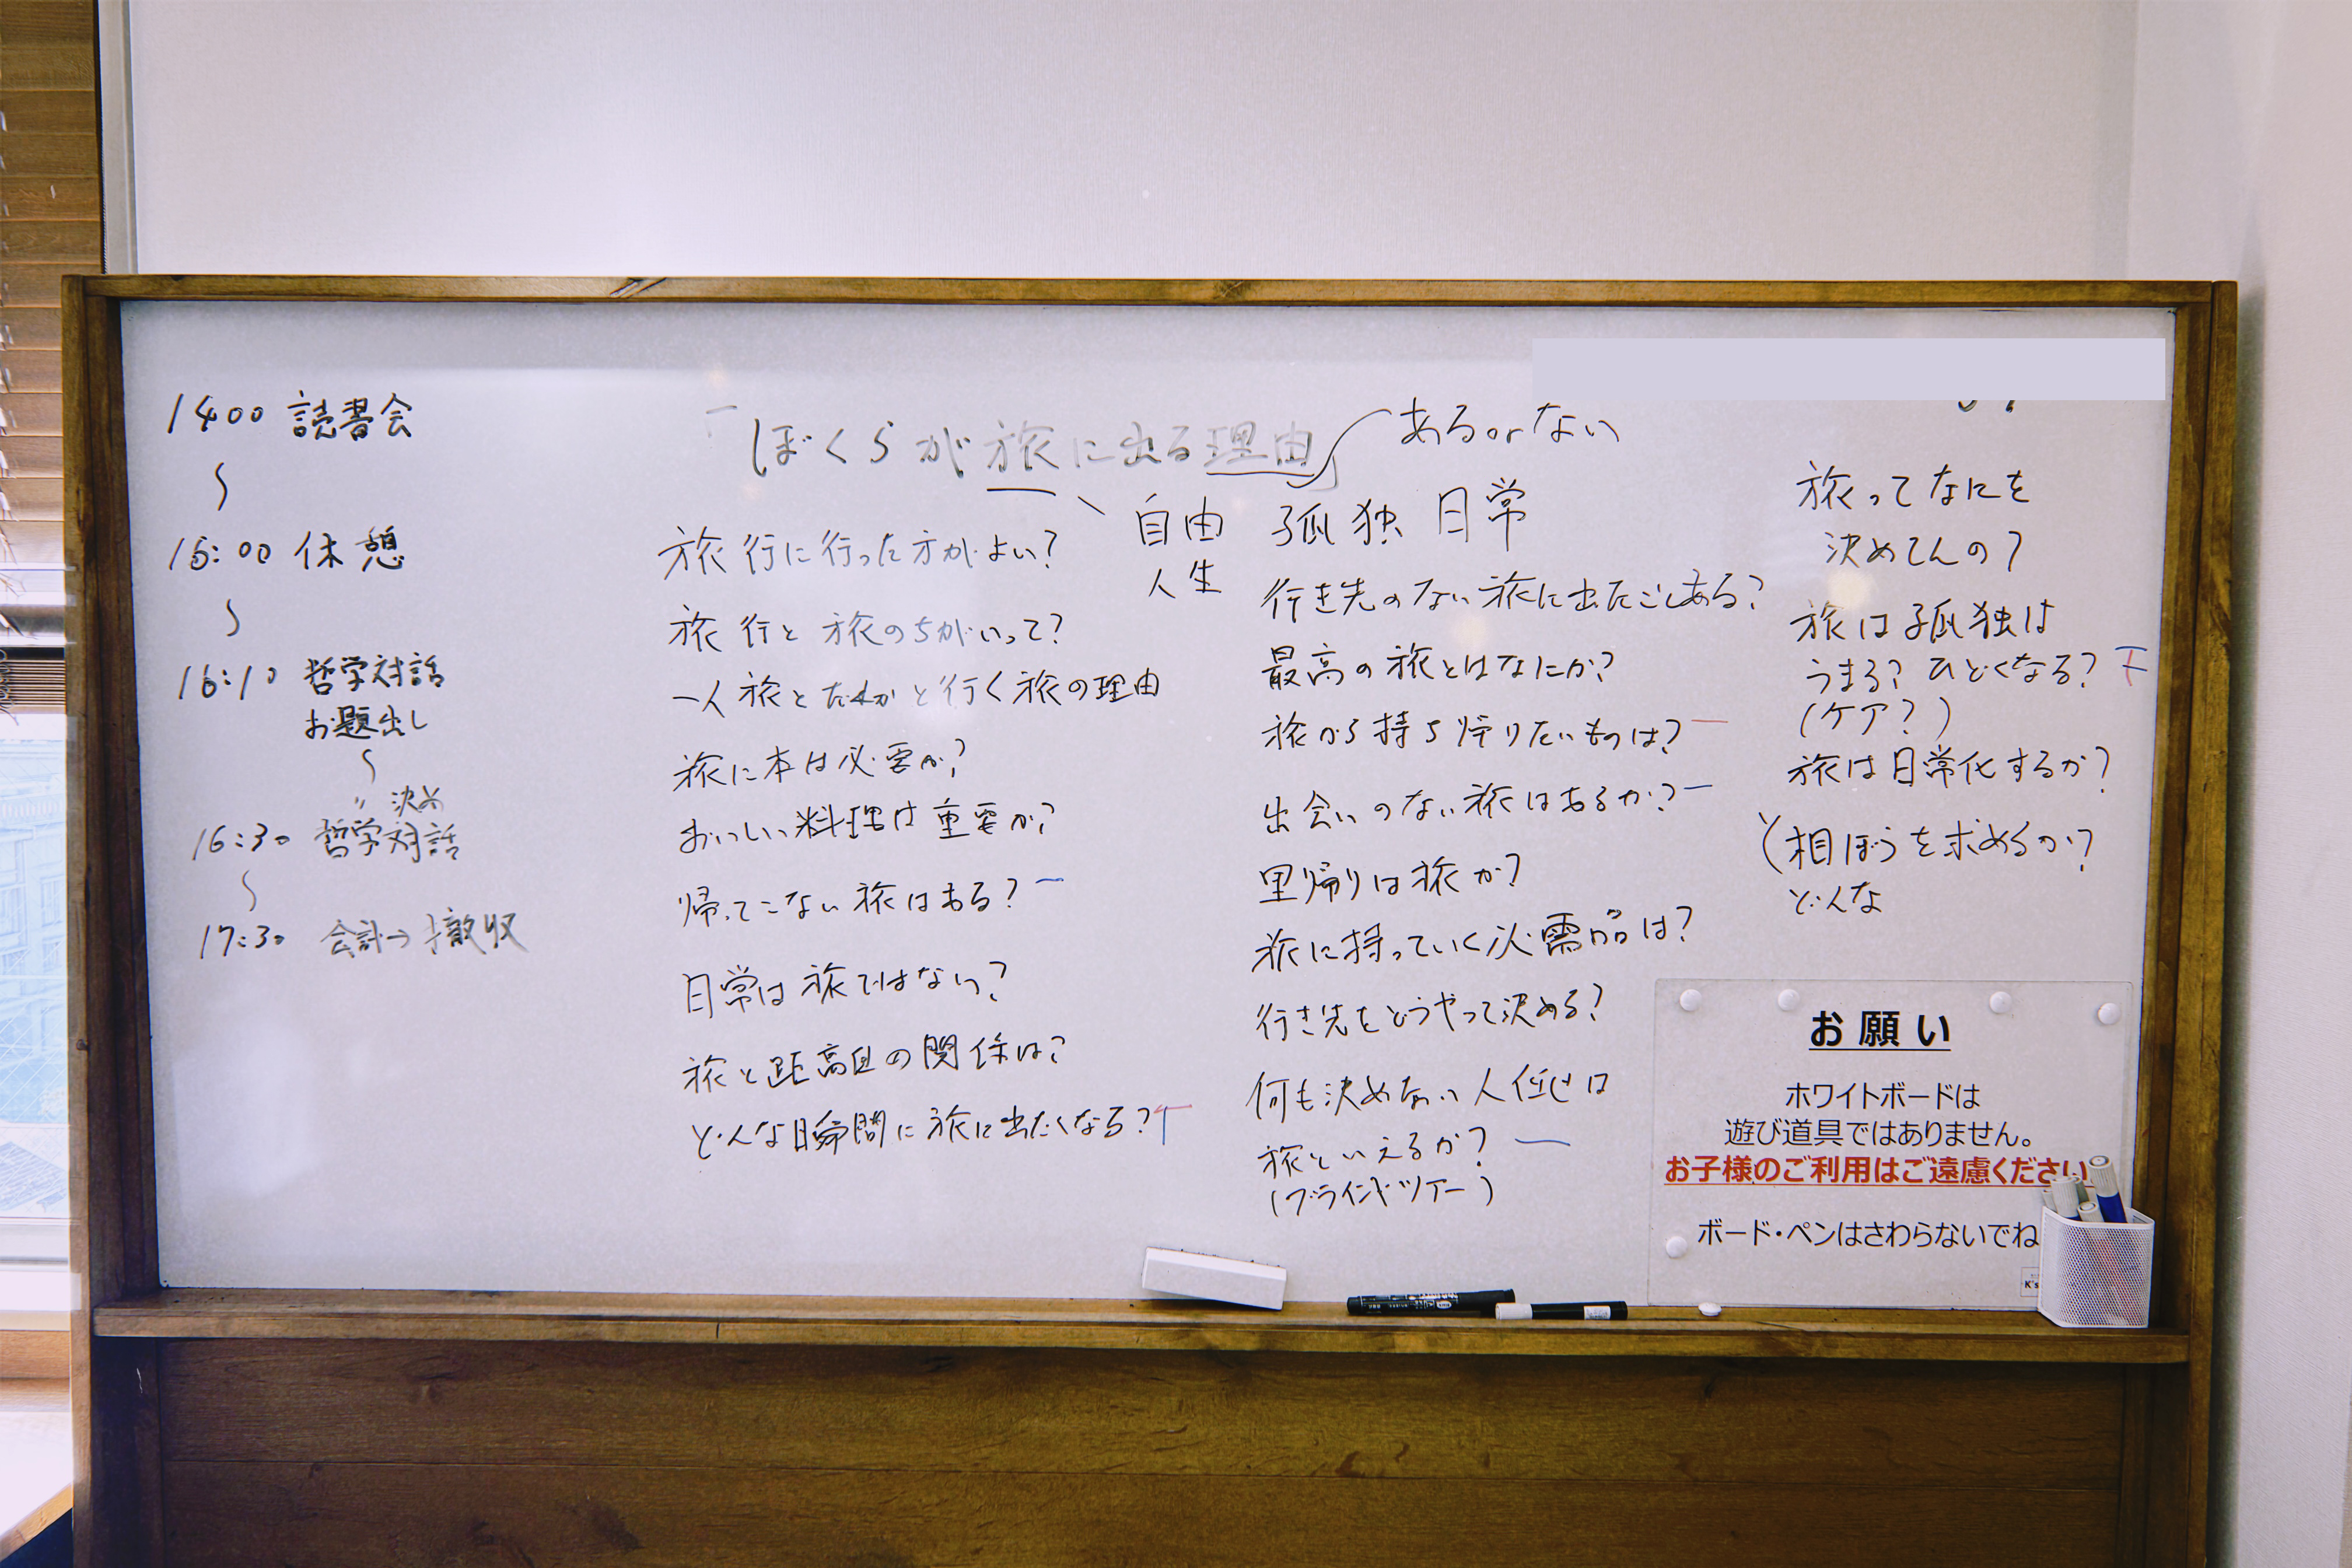 1400 読書会
〜
16:00 休憩
〜
16:10 哲学対話
お題出し
〜
〃 決め
16:30 哲学対話
〜
17:30 会計→撤収
「ぼくらが旅に出る理由」
あるorない
自由 孤独 日常
人生
旅行に行った方がよい?
旅行と旅のちがいって?
一人旅とだれかと行く旅の理由
旅に本は必要か?
おいしい料理は重要か?
帰ってこない旅はある? 一
日常は旅ではない?
旅と距離の関係は?
どんな瞬間に旅に出たくなる? T
行き先のない旅に出たことある?
最高の旅とはなにか?
旅から持ち帰りたいものは? 一
出会いのない旅はあるか? 一
里帰りは旅か?
旅に持っていく必需品は?
行き先をどうやって決める?
何も決めない人任せは
旅といえるか? 一
(ブラインドツアー)
旅ってなにを
決めてんの?
旅は孤独は
うまる? ひどくなる? 下
(ケア?)
旅は日常化するか?
相ぼうを求めるか?
どんな
お願い
ホワイトボードは
遊び道具ではありません。
お子様のご利用はご遠慮ください
ボード・ペンはさわらないでね
K's